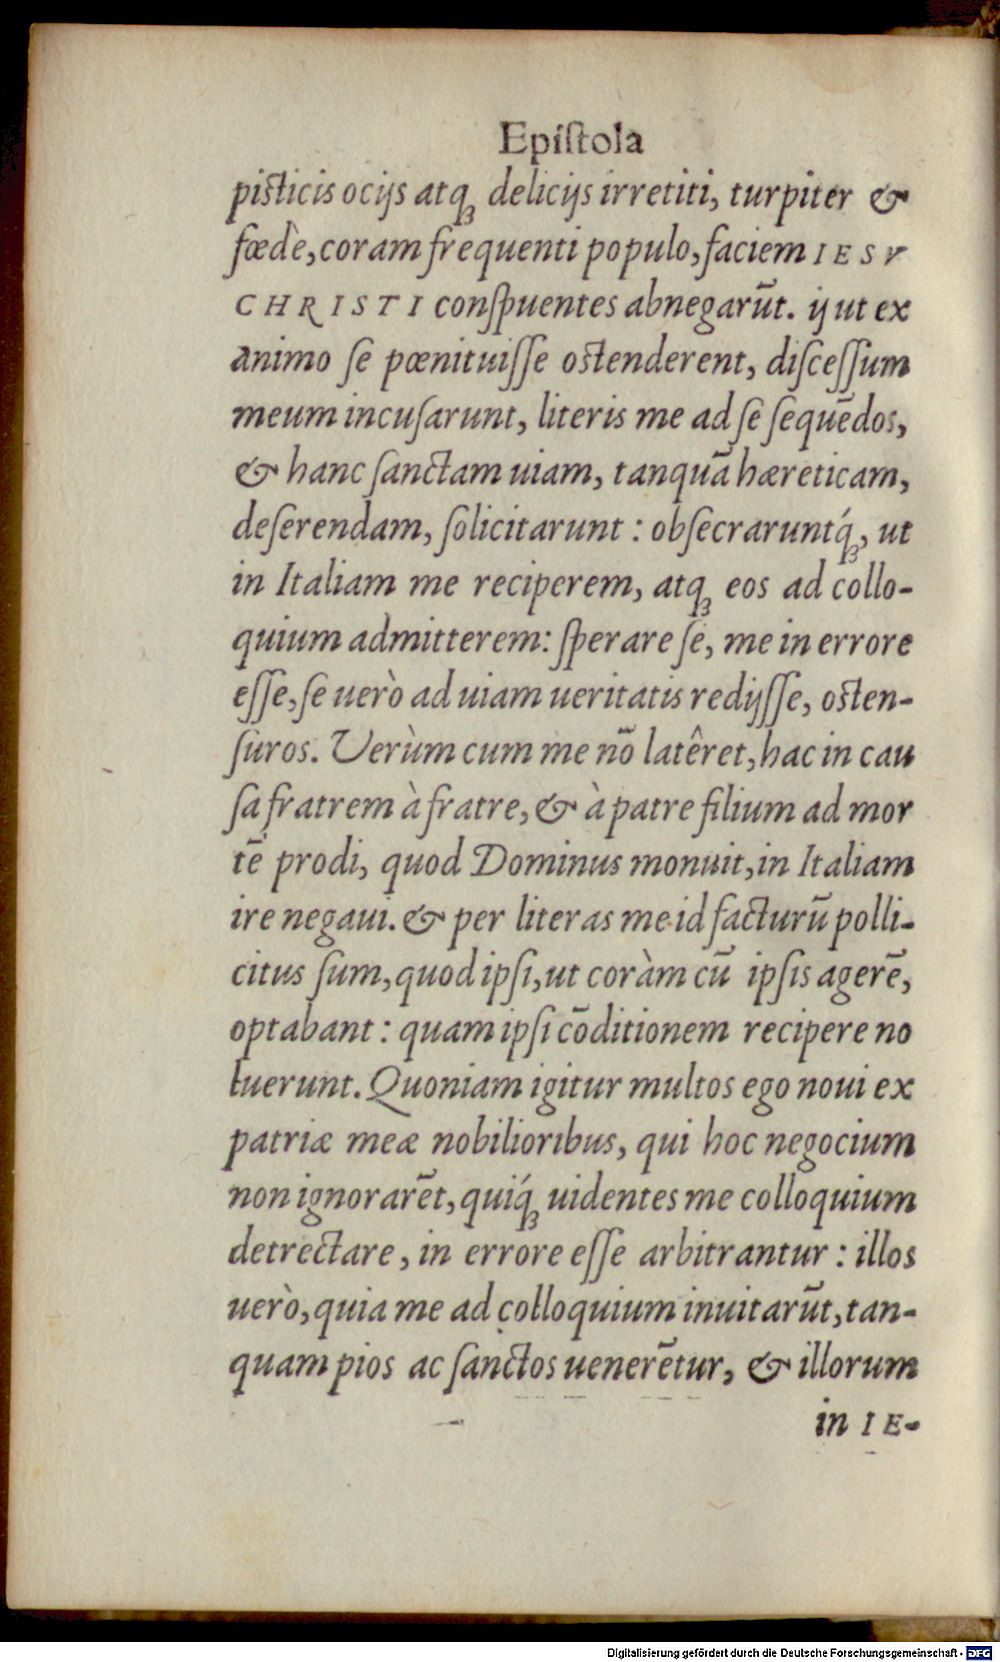 Epiſtola
piſticis ocijs atqꝫ delicijs irretiti, turpiter &
fœdè, coram frequenti populo, faciem IESV
CHRISTI conſpuentes abnegarūt. ij ut ex
animo ſe pœnituiſſe oſtenderent, diſceſſum
meum incuſarunt, literis me ad ſe ſequēdos,
& hanc ſanctam uiam, tanquā hæreticam,
deſerendam, ſolicitarunt : obſecraruntq́ꝫ, ut
in Italiam me reciperem, atqꝫ eos ad collo-
quium admitterem: ſperare ſe, me in errore
eſſe, ſe uerò ad uiam ueritatis redijſſe, oſten-
ſuros. Verùm cum me nō latêret, hac in cau
ſa fratrem à fratre, & à patre filium ad mor
tē prodi, quod Dominus monuit, in Italiam
ire negaui. & per literas me id facturū polli-
citus ſum, quod ipſi, ut coràm cū ipſis agerē,
optabant : quam ipſi cōditionem recipere no
luerunt. Quoniam igitur multos ego noui ex
patriæ meæ nobilioribus, qui hoc negocium
non ignorarēt, quiq́ꝫ uidentes me colloquium
detrectare, in errore eſſe arbitrantur : illos
uerò, quia me ad colloquium inuitarūt, tan-
quam pios ac ſanctos uenerētur, & illorum
in IE-
Digitalisierung gefördert durch die Deutsche Forschungsgemeinschaft - DFG